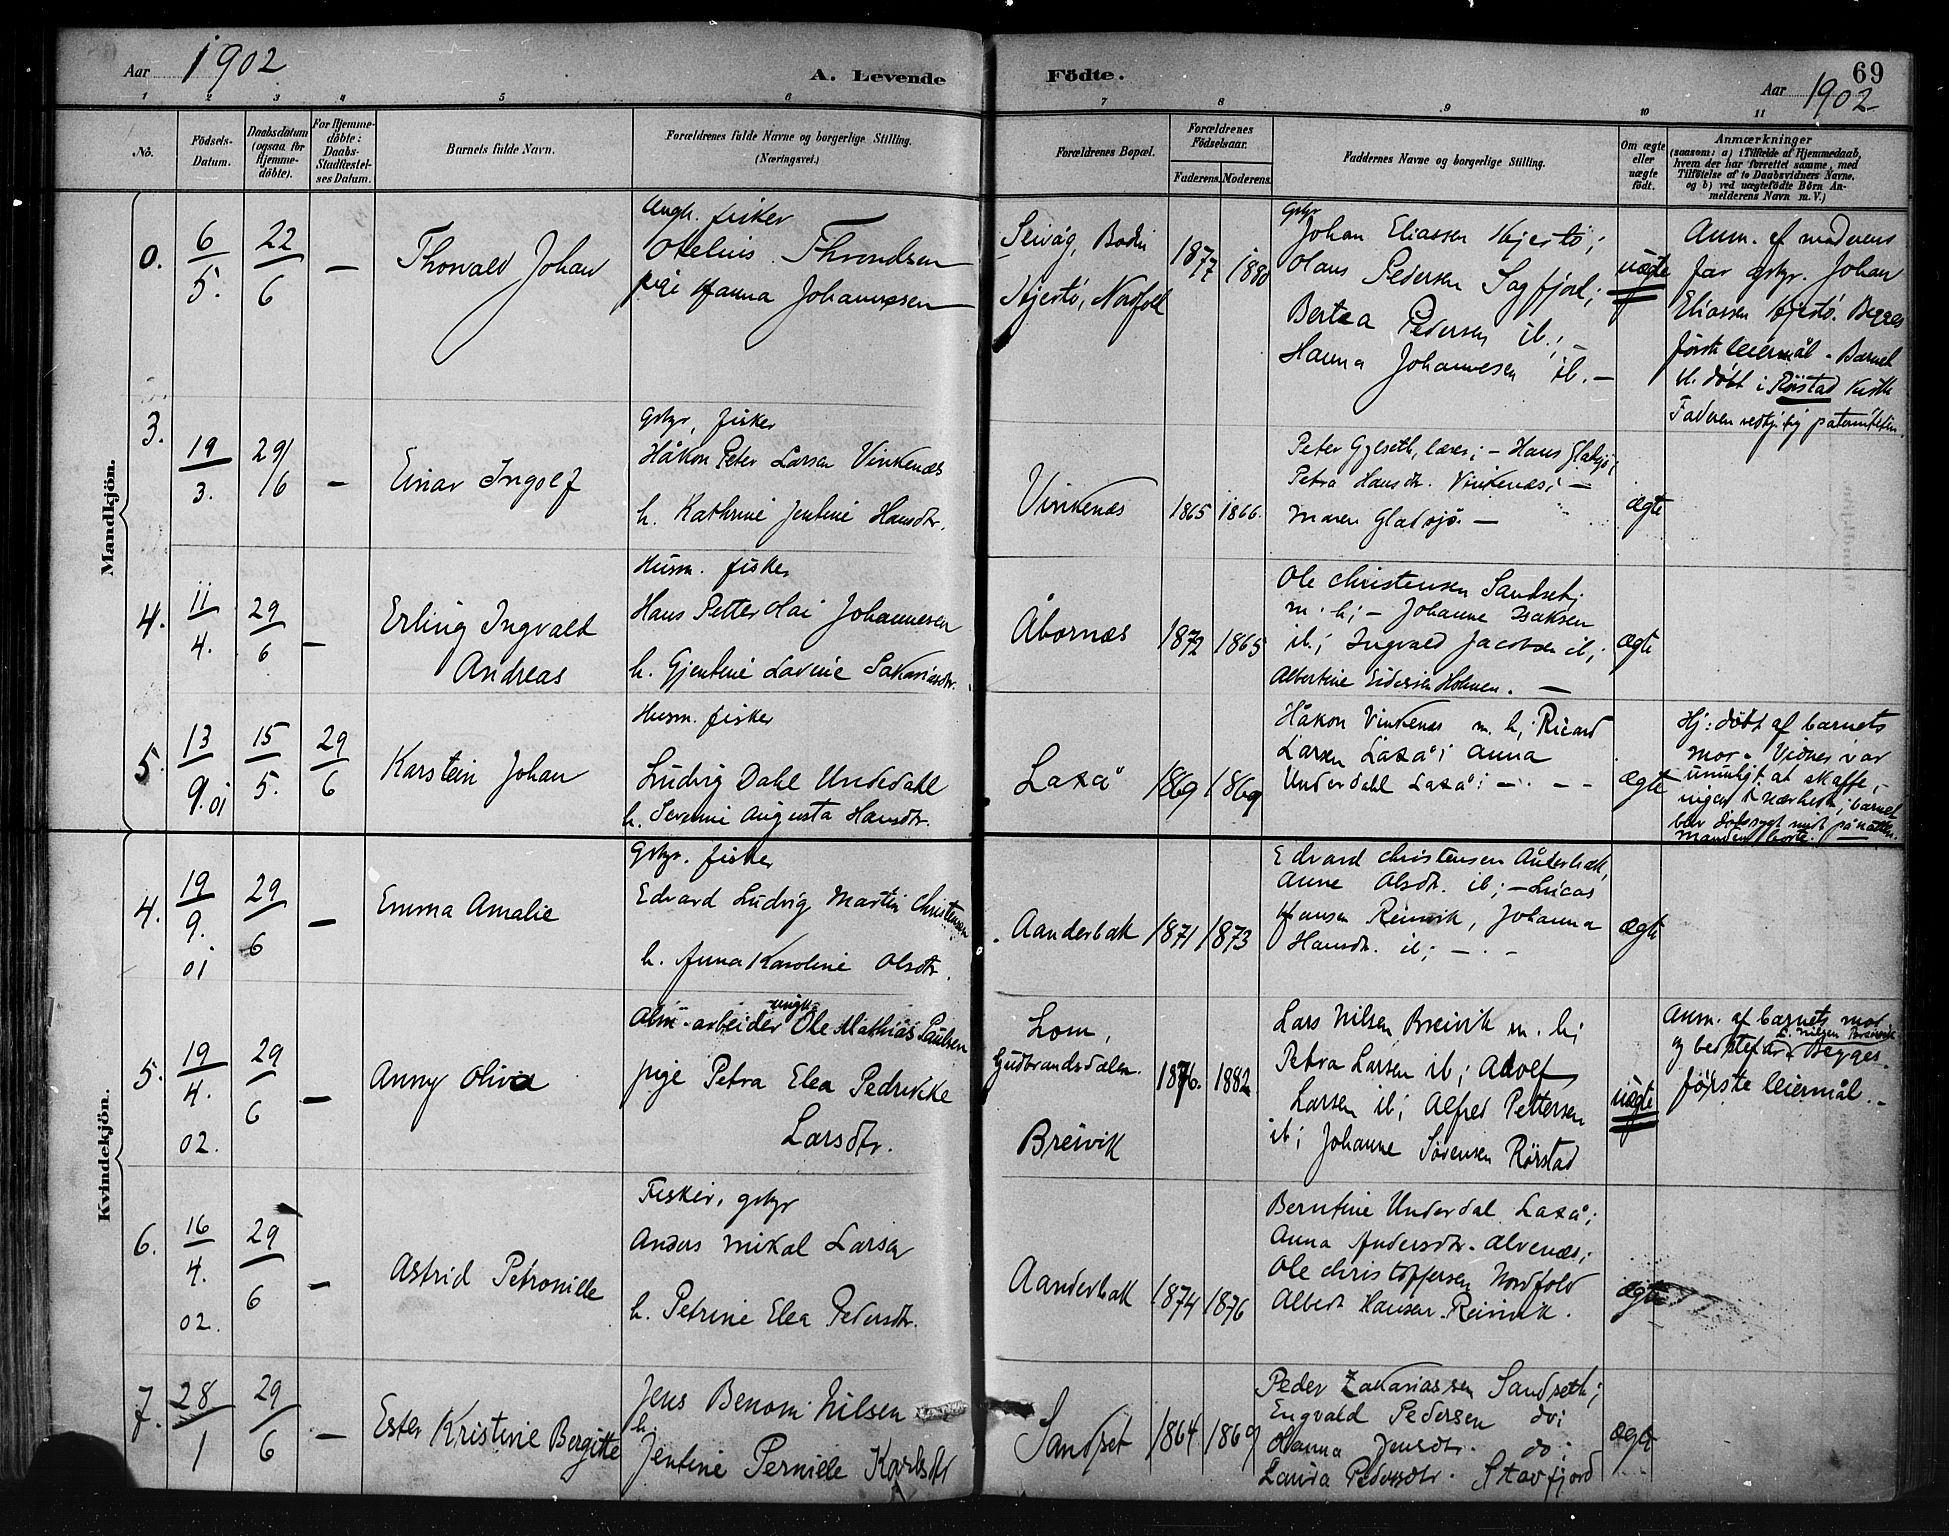 Aar 1902
A. Levende
Födte.
69
Aar 1902
1 2 3 4 5 6 7 8 9 10 11
No.
Födsels-Datum.
Daabsdatum (ogsaa for Hjemme-döbte).
For Hjemme-döbte: Daabs-Stadfæstel-ses Datum.
Barnets fulde Navn.
Forældrenes fulde Navne og borgerlige Stilling.
(Næringsvei.)
Forældrenes Bopæl.
Forældrenes Födselsaar.
Faderens. Moderens.
Faddernes Navne og borgerlige Stilling.
Om ægte eller uægte födt.
Anmærkninger
(saasom: a) i Tilfælde af Hjemmedaab,
hvem der har forrettet samme, med
Tilföielse af to Daabsvidners Navne,
og b) ved uægtefödte Börn An-
melderens Navn m. V.)
Mandkjön.
0. 6/5. 22/6 —
Thorvald Johan
Ungk. fisker
Otelius Throndsen
pige Hanna Johannessen
Seivåg, Bodin
Kjestø, Nordfold
1877 1880
Gbr
Johan Eliassen Kjestø;
Olaus Pedersen Sagfjord;
Bertea Pedersen ib.; —
Hanna Johannesen ib. —
uægte
Anm. af moderens
far gbr. Johan
Eliassen Kjestø. Begges
første leiermål. Barnet
bl. døbt i Rørstad Kirke
Faderen vedkj. sig paterniteten.
3. 19/3. 29/6 —
Einar Ingolf
Gbr, fisker
Håkon Peter Larsen Vinkenæs
h. Kathrine Jentine Hansdtr.
Vinkenæs
1865 1866.
Peter Gylseth, lærer; — Hans Gladsjø;
Petra Hansdtr. Vinkenæs; —
Maren Gladsjø. —
ægte
4. 11/4. 29/6 —
Erling Ingvald
Andreas
Husm. fisker
Hans Petter Olai Johannesen
h. Gjentine Lavine Sakariasdtr.
Åbornæs
1872 1865
Ole Christensen Sandset;
m. h; — Johanne Isaksen
ib.; Ingvald Jacobsen ib;
Albertine Eidersen Holmen. —
ægte
5. 13/9.01 15/5. 29/6
Karstein Johan
Husm. fisker
Ludvig Dahl Undedahl
h. Severine Augusta Hansdtr.
Laxå
1869 1869
Håkon Vinkenæs m. h; Ricard
Larsen Laxå; Anna
Underdahl Laxå; — . — -
ægte
Hj: døbt af barnets
mor. Vidnes var
umuligt at skaffe,
ingen i nærheden; barnet
blev dødssygt midt på natten.
Manden borte. —
Kvindekjön.
4. 19/9. 01 29/6 —
Emma Amalie
Gbr. fisker
Edvard Ludvig Martin Christensen
h. Anna Karoline Olsdtr.
Aanderbak
1871 1873
Edvard Christensen Ånderbak,
Anne Olsdtr. ib; — Lucas
Hansen Reinvik, Johanna
Hansdtr. ib; — . -
ægte
5. 19/4. 02. 29/6 —
Anny Oliva
Alm. arbeider ungk. Ole Mathias Paulsen
pige Petra Elea Pedrikke
Larsdtr.
Lom,
Gudbrandsdalen.
Breivik
1876. 1882
Lars Nilsen Breivik m. h;
Petra Larsen ib; Adolf
Larsen ib; Alfred Pettersen
ib; Johanne Sørensen Rørstad
uægte
Anm. af barnets mor
og bedstefar L. Nilsen Breivik. Begges
første leiermål. —
6. 16/4. 02. 29/6 —
Astrid Petronille
Fisker, gbr
Anders Mikal Larsen
h. Petrine Elea Pedersdtr.
Aanderbak
1874 1876
Berntine Underdal Laxå;
Anna Andersdtr. Alvenæs;
Ole Christoffersen Nordfold
Albert Hansen Reinvik.
ægte
7. 28/1 29/6 —
Ester Kristine Bergitte
Jens Benoni Nilsen
h. Jentine Pernille Karlsdtr
Sandset
1864 1869
Peder Zakariassen Sandseth;
Engvald Pedersen do;
Hanna Jensdtr. do;
Laura Pedersdtr. Stavfjord
ægte